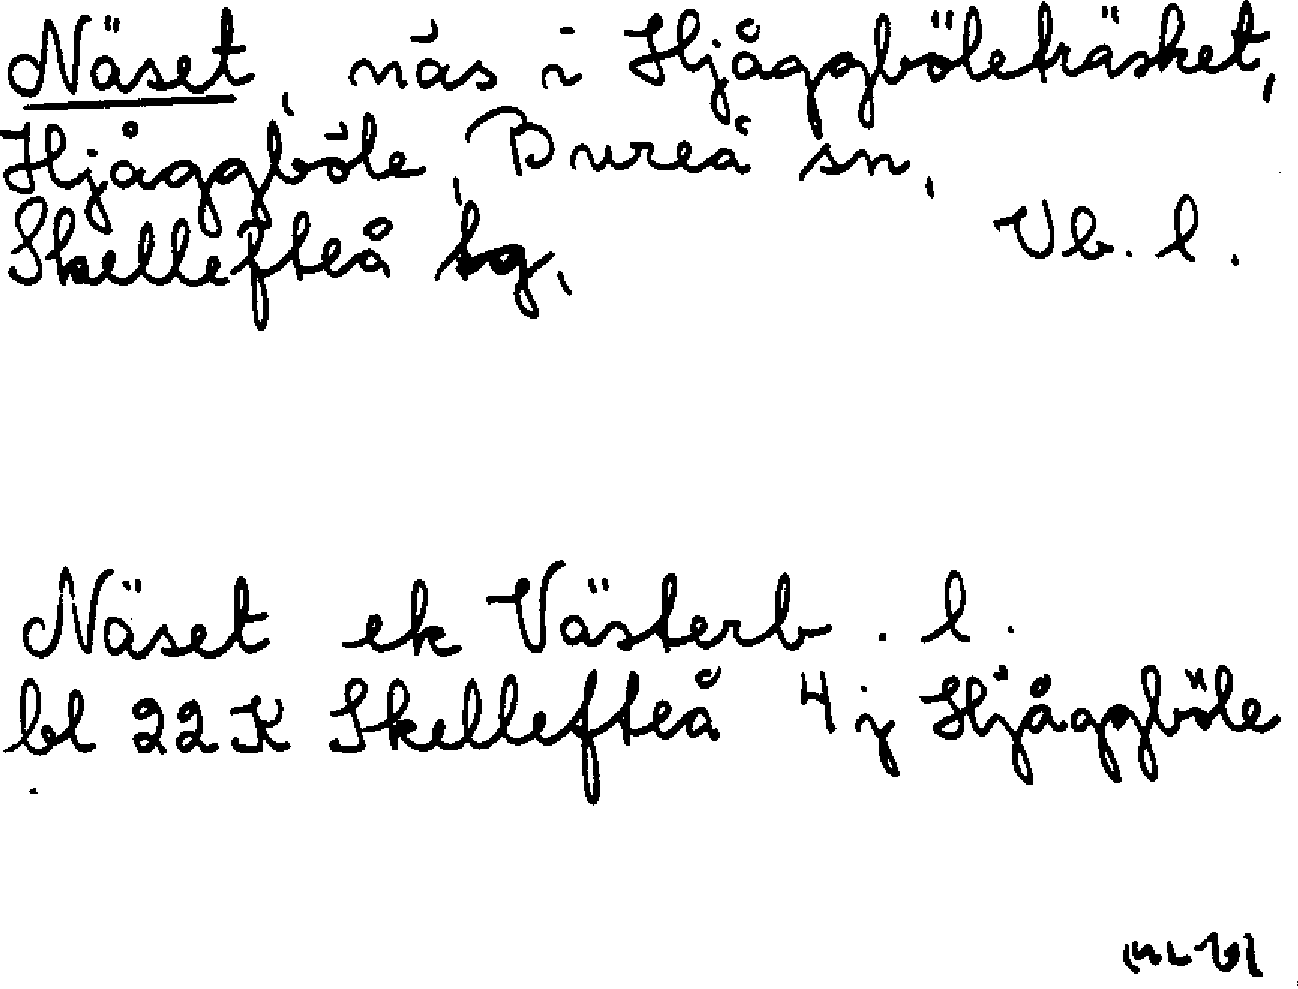 Näset, näs i Hjåggböleträsket,
Hjåggböle, Bureå sn,
Skellefteå tg, Vb. l.
Näset ek Västerb. l.
bl 22K Skellefteå 4j Hjåggböle